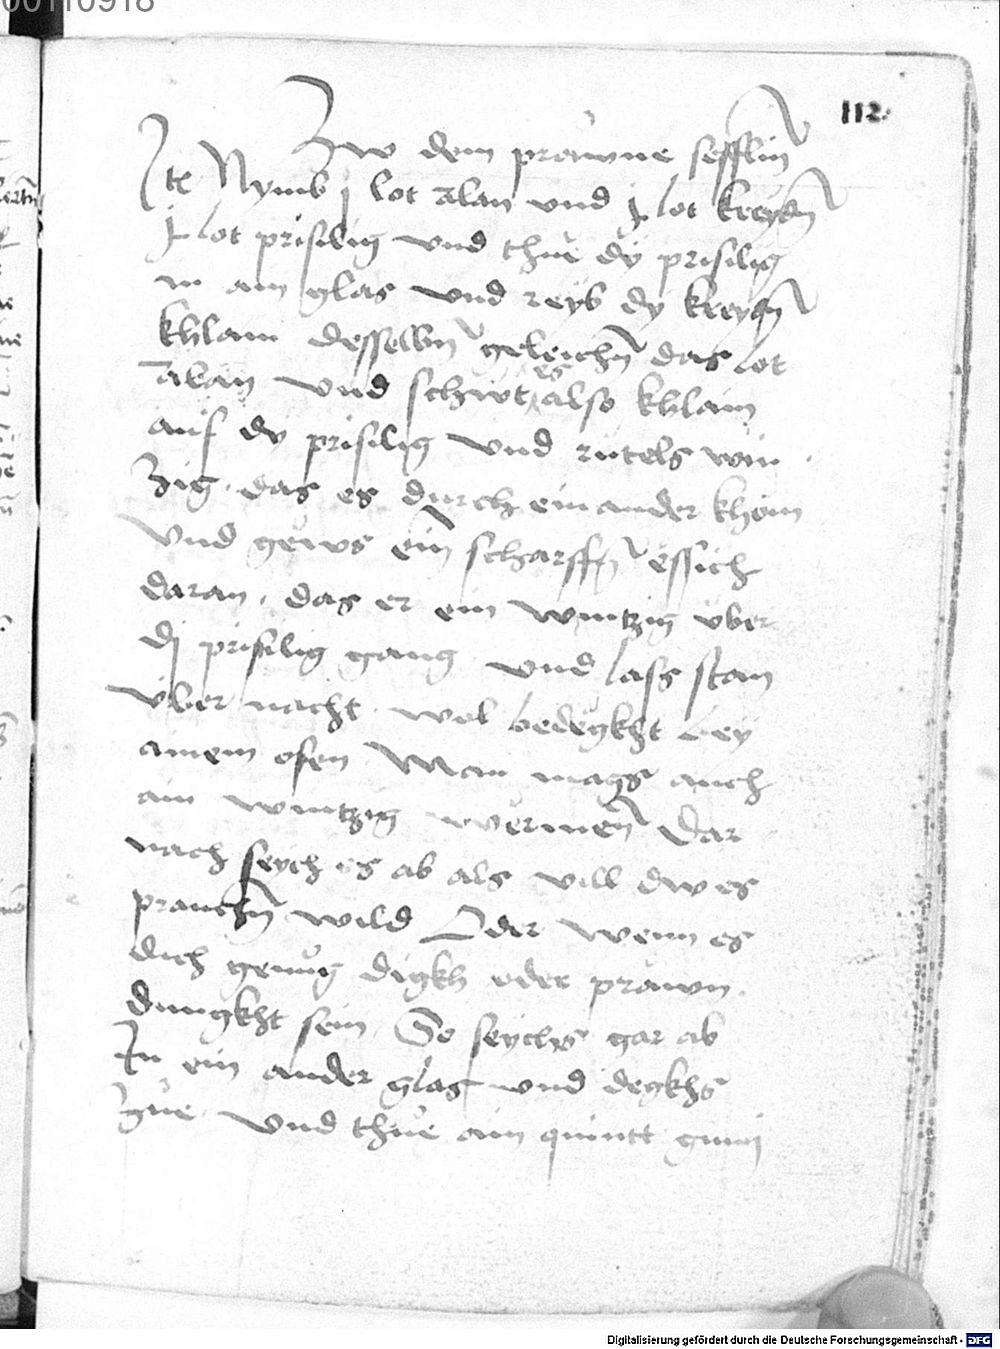 00110918
112.
Zw dem prawne sefflin
Ite Nymb j lot alan vnd j lot kreydn
j lot prisilig vnd thue dy prisilig
in ain glas vnd reyb dy kreydn
khlain desselbn geleichn das lot
alan vnd schwt es also khlain
auf dy prisilig vnd rutels win
zig das es durch ein ander khom
vnd gews ein scharffn essich
daran, das er ein wintzig vber
dj prisilig gang vnd lass stan
vber nacht wol bedegkht bey
ainem ofen Man mags auch
ain wintzig wermen Dar
nach seych es ab als vill dw es
prauchn wild Oder wenn es
dich genug digkh oder prawn
dungkht sein So seychs gar ab
In ein ander glas vnd degkhs
zue vnd thue ain quintt gumj
Digitalisierung gefördert durch die Deutsche Forschungsgemeinschaft - DFG